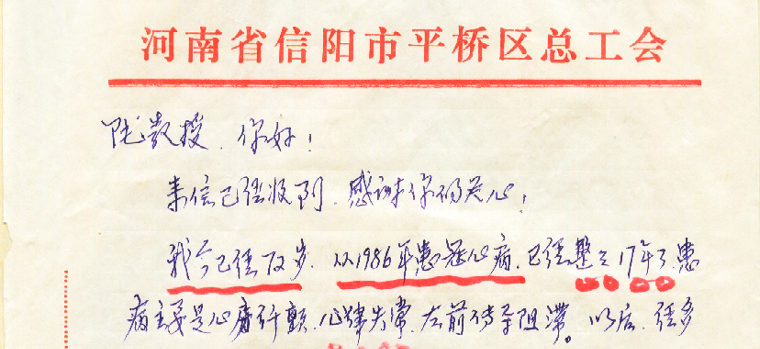 河南省信阳市平桥区总工会
陇教授、你好！
来信已经收到、感谢你的关心！
我今已经72岁、从1986年患冠心病、已经整整17年了患
病主要是心房纤颤、心律失常、左前传导阻滞。以后、经多